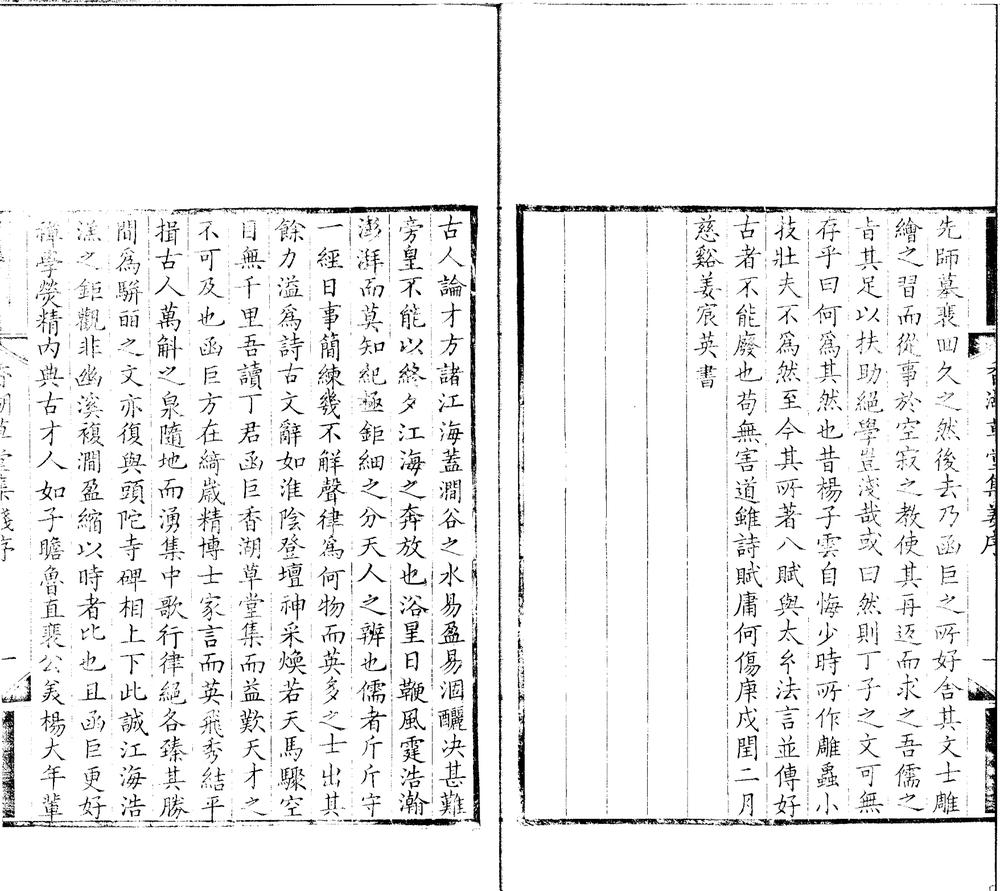 香湖草堂集姜序
一
先師墓裴回久之然後去乃函巨之所好舍其文士雕
繪之習而從事於空寂之教使其再迈而求之吾儒之
㫖其足以扶助絕學豈淺哉或曰然則丁子之文可無
存乎曰何爲其然也昔楊子雲自悔少時所作雕蟲小
技壯夫不爲然至今其所著八賦與太𤣥法言並傳好
古者不能廢也苟無害道雖詩賦庸何傷庚戍閏二月
慈谿姜宸英書
古人論才方諸江海蓋澗谷之水易盈易涸釃决甚難
旁皇不能以終夕江海之奔放也浴星日鞭風霆浩瀚
澎湃而莫知紀極鉅細之分天人之辨也儒者斤斤守
一經日事簡練幾不解聲律爲何物而英多之士出其
餘力溢爲詩古文辭如淮陰登壇神采煥若天馬驟空
目無千里吾讀丁君函巨香湖草堂集而益歎天才之
不可及也函巨方在綺歲精博士家言而英飛秀結平
揖古人萬斛之泉隨地而湧集中歌行律絕各臻其勝
間爲駢麗之文亦復與頭陀寺碑相上下此誠江海浩
漾之鉅觀非幽溪複澗盈縮以時者比也且函巨更好
禪學熒精內典古才人如子瞻魯直裴公美楊大年輩
香湖草堂集錢序
一